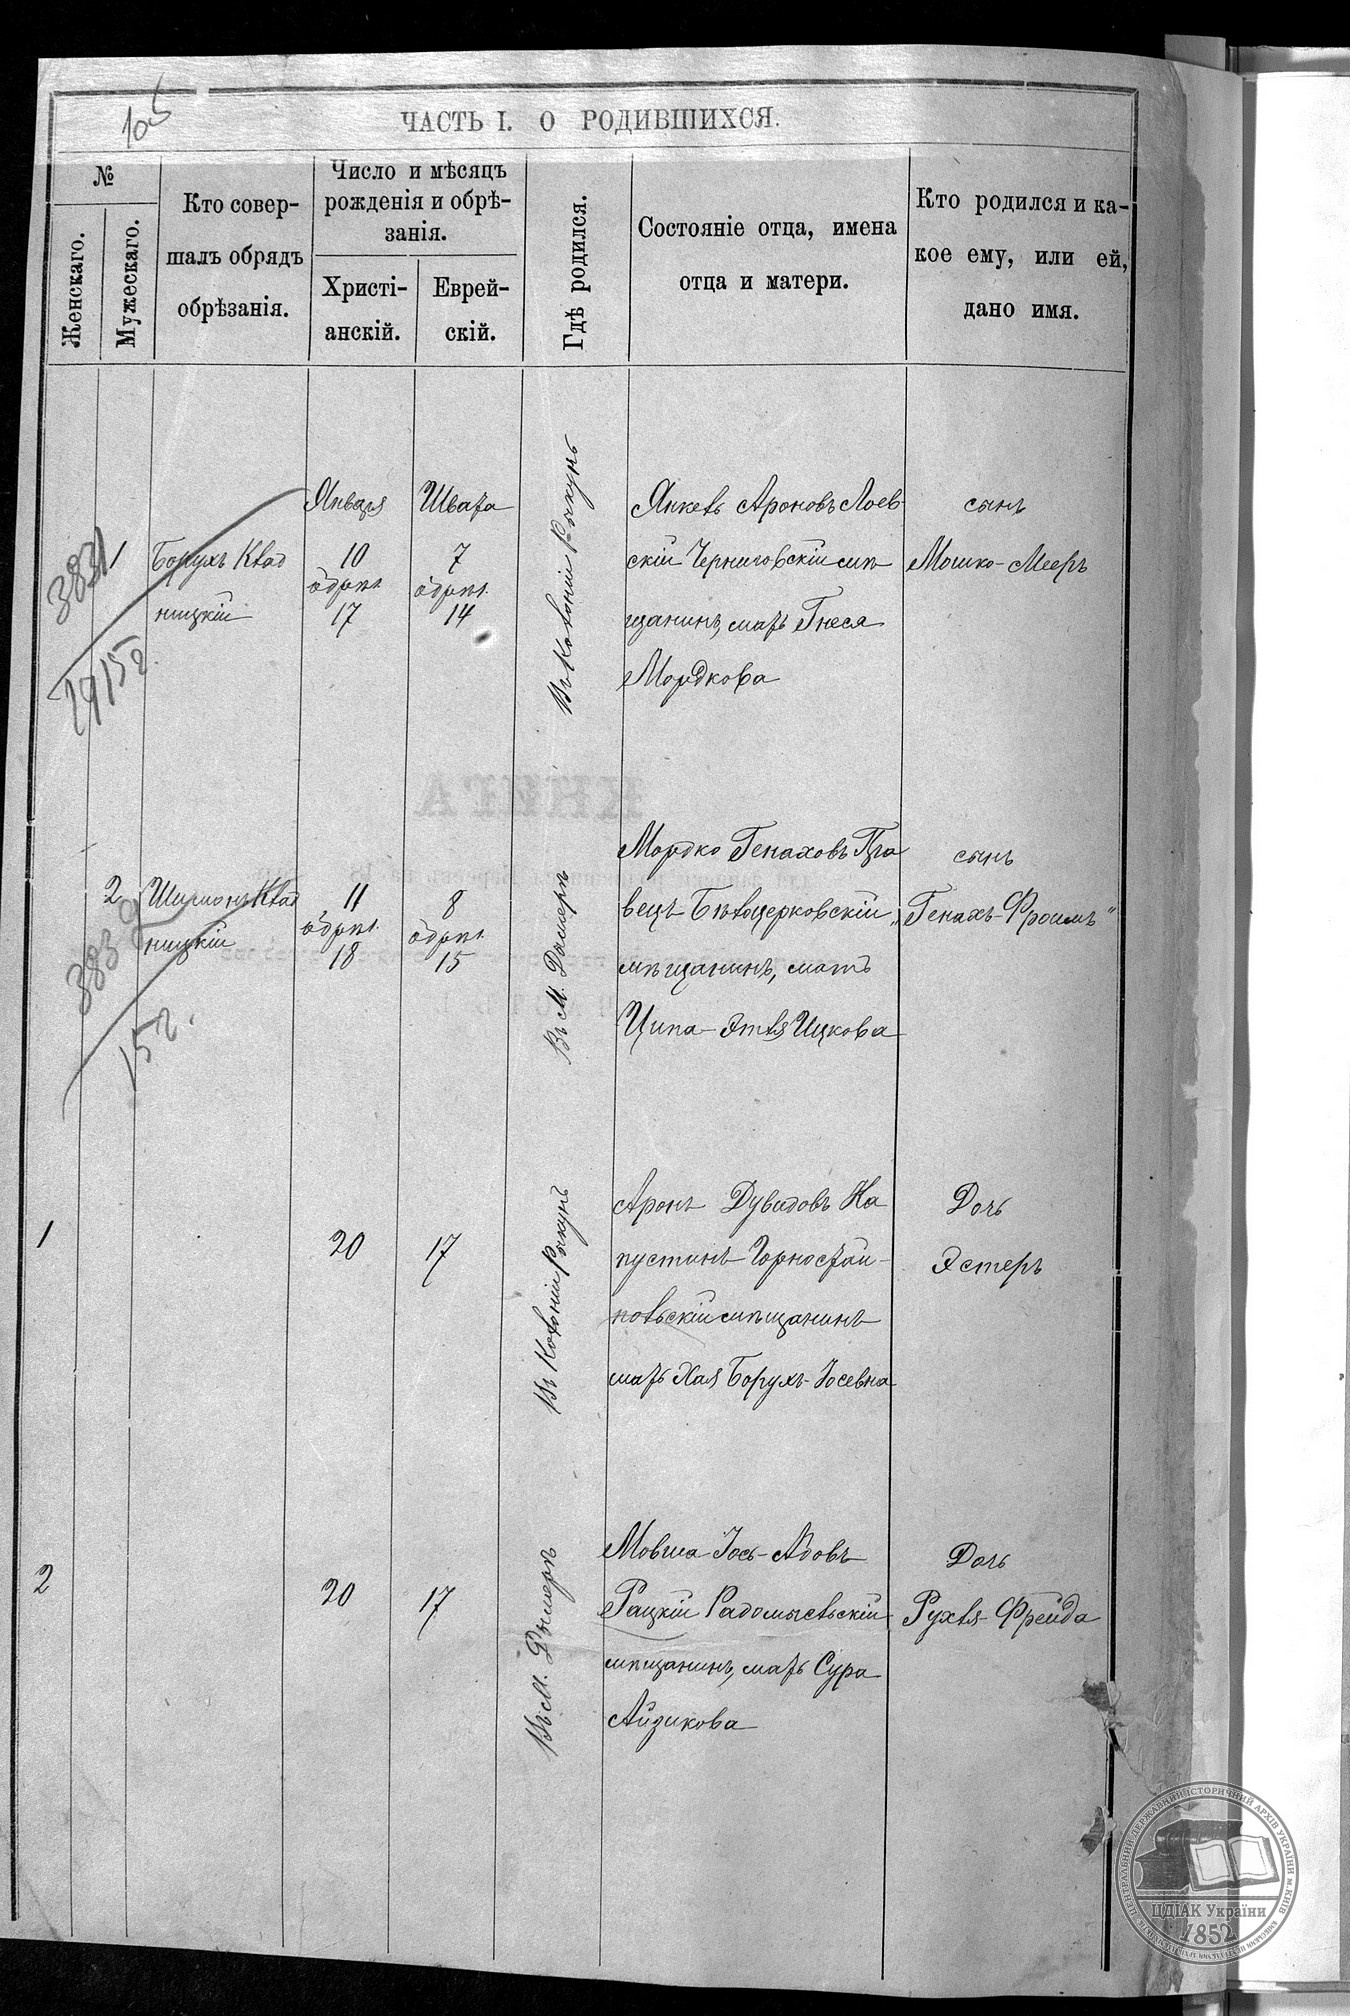 105
ЧАСТЬ I. О РОДИВШИХСЯ.
№
Женскаго.
Мужескаго.
Кто совер-
шалъ обрядъ
обрѣзанія.
Число и мѣсяцъ
рожденія и обрѣ-
занія.
Христі-
анскій.
Еврей-
скій.
Гдѣ родился.
Состояніе отца, имена
отца и матери.
Кто родился и ка-
кое ему, или ей,
дано имя.
1
Борухъ Квад
ницкій
Января
10
обрѣз.
17
Швата
7
обрѣз.
14
Въ Колоніи Рыкунъ
Янкель Ароновъ Лоев-
скій Черниговскій мѣ
щанинъ, мать Гнеся
Мордкова
сынъ
Мошко-Мееръ
3831
1915 г.
2
Шимонъ Квад
ницкій
11
обрѣз.
18
8
обрѣз.
15
Въ М. Дымерѣ
Мордко Генаховъ
вецъ Бѣлоцерковскій
мѣщанинъ, мать
Ципа-Этля Ицкова
сынъ
„Генахъ-Фроимъ"
3839
15 г.
1
20
17
Въ Колоніи Рыкунъ
Аронъ Дувидовъ Ка
пустинъ Горностай-
польскій мѣщанинъ
мать Хая Борухъ-Іосевна
Дочь
Эстеръ
2
20
17
Въ М. Дымерѣ
Мовша Іось-Абовъ
Рацкій Радомысльскій
мѣщанинъ, мать Сура
Айзикова
Дочь
Рухля-Фрейда
КНИГА
ЦЕНТРАЛЬНИЙ ДЕРЖАВНИЙ ІСТОРИЧНИЙ АРХІВ УКРАЇНИ м.КИЇВ
ЦДІАК України
1852